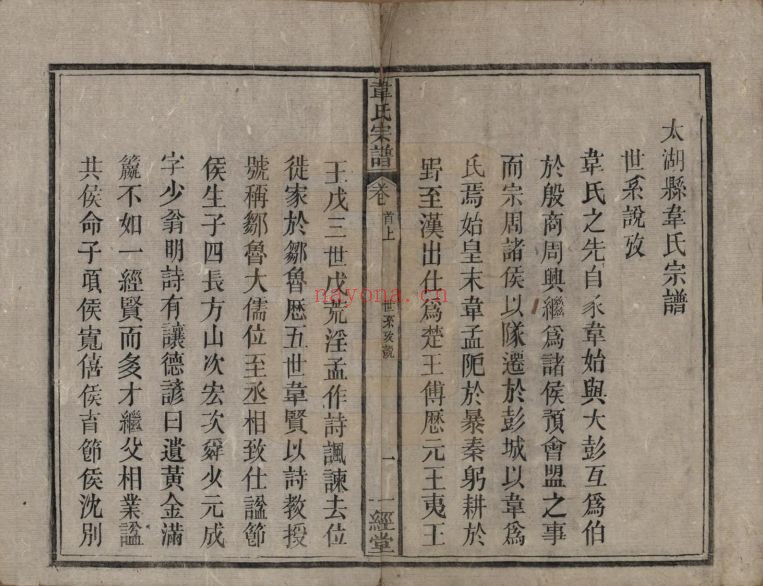 太湖縣韋氏宗譜
世系說攷
韋氏之先自豕韋始與大彭互爲伯
於殷商周興繼爲諸侯預會盟之事
而宗周諸侯以隊遷於彭城以韋爲
氏焉始皇末韋孟阨於暴秦躬耕於
野至漢出仕爲楚王傅歷元王夷王
韋氏宗譜
卷首上
世系攷說
一
一經堂
王戊三世戊荒淫孟作詩諷諫去位
徙家於鄒魯歷五世韋賢以詩教授
號稱鄒魯大儒位至丞相致仕謚節
侯生子四長方山次宏次舜少元成
字少翁明詩有讓德諺曰遺黃金滿
籯不如一經賢而多才繼父相業謚
共侯命子項侯寬僖侯育節侯沈別
nayona.cn